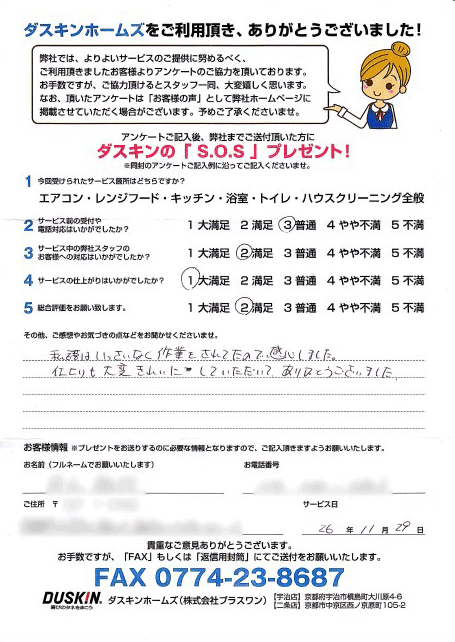 ダスキンホームズをご利用頂き、ありがとうございました！
弊社では、よりよいサービスのご提供に努めるべく、
ご利用頂きましたお客様よりアンケートのご協力を頂いております。
お手数ですが、ご協力頂けるとスタッフ一同、大変嬉しく思います。
なお、頂いたアンケートは「お客様の声」として弊社ホームページに
掲載させていただく場合がございます。予めご了承くださいませ。
アンケートご記入後、弊社までご送付頂いた方に
ダスキンの「S.O.S」プレゼント！
※同封のアンケートご記入例に沿ってご記入くださいませ。
1 今回受けられたサービス箇所はどちらですか？
エアコン・レンジフード・キッチン・浴室・トイレ・ハウスクリーニング全般
2 サービス前の受付や
電話対応はいかがでしたか？ 1 大満足 2 満足 3 普通 4 やや不満 5 不満
3 サービス中の弊社スタッフの
お客様への対応はいかがでしたか？ 1 大満足 2 満足 3 普通 4 やや不満 5 不満
4 サービスの仕上がりはいかがでしたか？ 1 大満足 2 満足 3 普通 4 やや不満 5 不満
5 総合評価をお願い致します。 1 大満足 2 満足 3 普通 4 やや不満 5 不満
その他、ご感想やお気づきの点などをお聞かせくださいませ。
私語はいっさいなく作業をされてたので感心しました。
仕上りも大変きれいにしていただいてありがとうございました
お客様情報 ※プレゼントをお送りするのに必要な情報となりますので、ご記入頂きますようお願いいたします。
お名前（フルネームでお願いいたします） お電話番号
ご住所 〒 サービス日
26 年 11 月 29 日
貴重なご意見ありがとうございます。
お手数ですが、「FAX」もしくは「返信用封筒」にてご送付をお願いいたします。
FAX 0774-23-8687
DUSKIN. 喜びのタネをまこう ダスキンホームズ（株式会社プラスワン） 【宇治店】京都府宇治市槇島町大川原4-6
【二条店】京都市中京区西ノ京原町105-2